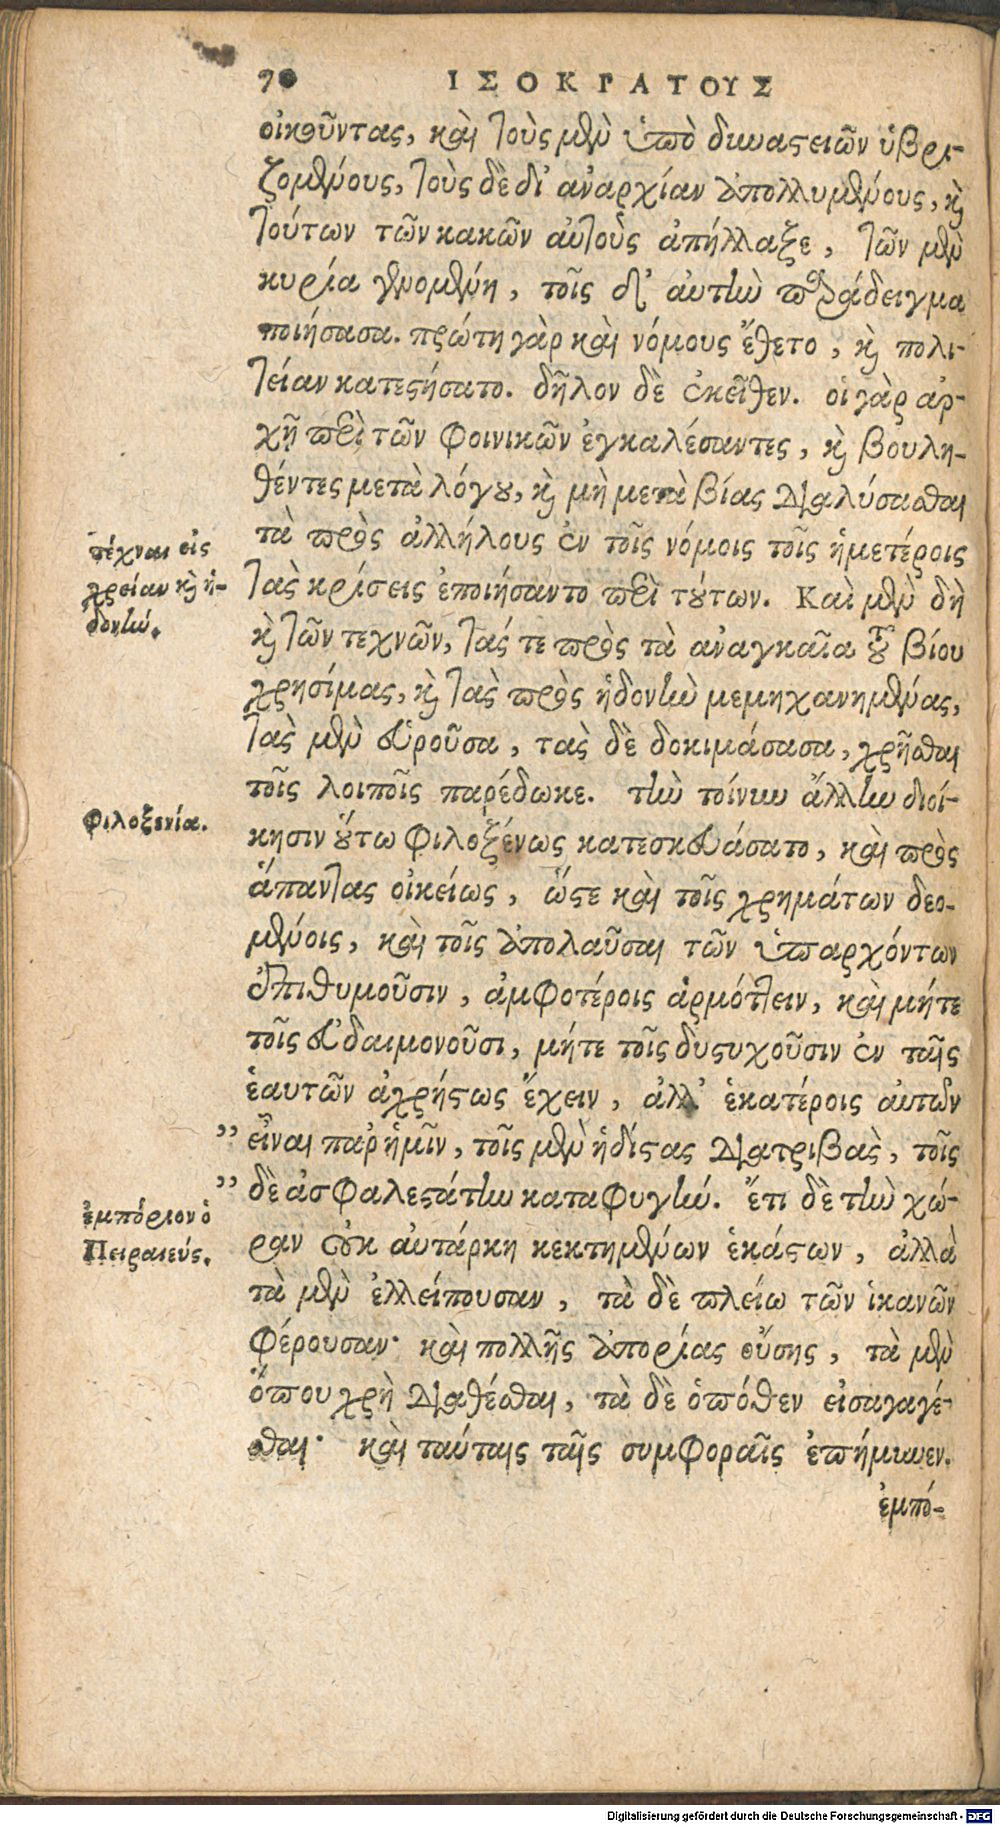 70 ΙΣΟΚΡΑΤΟΥΣ
οἰκοῦντας, καὶ τοὺς μὲν ὑπὸ δυναστειῶν ὑβρι-
ζομένους, τοὺς δὲ δι' ἀναρχίαν ἀπολλυμένους, καὶ
τούτων τῶν κακῶν αὐτοὺς ἀπήλλαξε, τῶν μὲν
κυρία γενομένη, τοῖς δ' αὐτὴν παράδειγμα
ποιήσασα. πρώτη γὰρ καὶ νόμους ἔθετο, καὶ πολι-
τείαν κατεστήσατο. δῆλον δὲ ἐκεῖθεν. οἱ γὰρ ἀρ-
χῇ περὶ τῶν φοινικῶν ἐγκαλέσαντες, καὶ βουλη-
θέντες μετὰ λόγου, καὶ μὴ μετὰ βίας διαλύσασθαι
τὰ πρὸς ἀλλήλους ἐν τοῖς νόμοις τοῖς ἡμετέροις
τὰς κρίσεις ἐποιήσαντο περὶ τούτων. Καὶ μὲν δὴ
καὶ τῶν τεχνῶν, τάς τε πρὸς τὰ ἀναγκαῖα τοῦ βίου
χρησίμας, καὶ τὰς πρὸς ἡδονὴν μεμηχανημένας,
τὰς μὲν εὑροῦσα, τὰς δὲ δοκιμάσασα, χρῆσθαι
τοῖς λοιποῖς παρέδωκε. τὴν τοίνυν ἄλλην διοί-
κησιν οὕτω φιλοξένως κατεσκευάσατο, καὶ πρὸς
ἅπαντας οἰκείως, ὥστε καὶ τοῖς χρημάτων δεο-
μένοις, καὶ τοῖς ἀπολαῦσαι τῶν ὑπαρχόντων
ἐπιθυμοῦσιν, ἀμφοτέροις ἁρμόττειν, καὶ μήτε
τοῖς εὐδαιμονοῦσι, μήτε τοῖς δυστυχοῦσιν ἐν ταῖς
ἑαυτῶν ἀχρήστως ἔχειν, ἀλλ' ἑκατέροις αὐτῶν
" εἶναι παρ' ἡμῖν, τοῖς μὲν ἡδίστας διατριβὰς, τοῖς
" δὲ ἀσφαλεστάτην καταφυγήν. ἔτι δὲ τὴν χώ-
ραν οὐκ αὐτάρκη κεκτημένων ἑκάστων, ἀλλὰ
τὰ μὲν ἐλλείπουσαν, τὰ δὲ πλείω τῶν ἱκανῶν
φέρουσαν· καὶ πολλῆς ἀπορίας οὔσης, τὰ μὲν
ὅπου χρὴ διαθέσθαι, τὰ δὲ ὁπόθεν εἰσαγαγέ-
σθαι· καὶ ταύταις ταῖς συμφοραῖς ἐπήμυνεν.
ἐμπό-
τέχναι εἰς
χρείαν καὶ ἡ-
δονήν.
Φιλοξενία.
ἐμπόριον ὁ
Πειραιεύς.
Digitalisierung gefördert durch die Deutsche Forschungsgemeinschaft - DFG